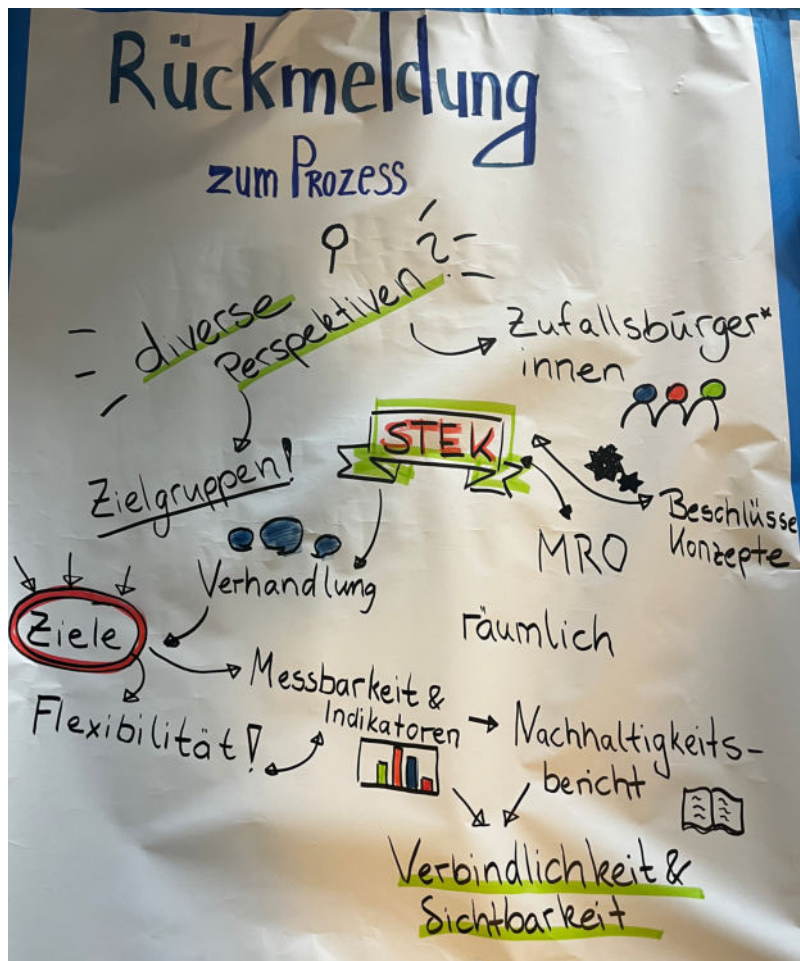 Rückmeldung
zum Prozess
diverse
Perspektiven
?
Zufallsbürger*
innen
STEK
Zielgruppen!
Beschlüsse
Konzepte
MRO
Verhandlung
räumlich
Ziele
Messbarkeit &
Indikatoren
Flexibilität!
Nachhaltigkeits-
bericht
Verbindlichkeit &
Sichtbarkeit